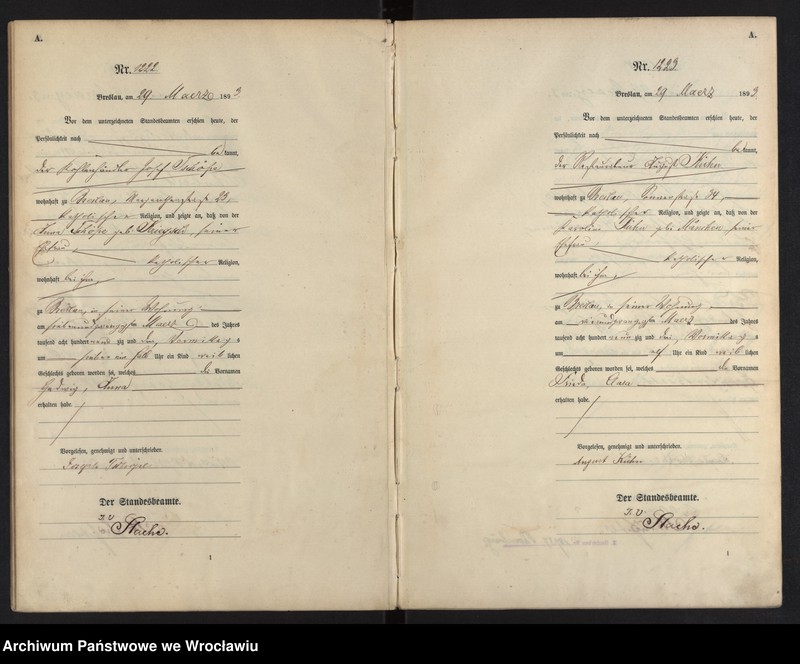 A.
Nr. 1222.
Breslau, am 29 Maerz 1893
Vor dem unterzeichneten Standesbeamten erschien heute, der
Persönlichkeit nach
bekannt,
der Kohlenhändler Josef
wohnhaft zu Breslau, 23,
katholischer Religion, und zeigte an, daß von der
Anna geb. seiner
Ehefrau,
katholischer Religion,
wohnhaft bei ihm,
zu Breslau, in seiner Wohnung
am siebenundzwanzigsten Maerz des Jahres
tausend acht hundert neunzig und drei, Vormittags
um sieben ein halb Uhr ein Kind weiblichen
Geschlechts geboren worden sei, welches die Vornamen
Hedwig, Anna
erhalten habe.
Vorgelesen, genehmigt und unterschrieben.
Der Standesbeamte.
I. V.
Stache.
1
A.
Nr. 1223.
Breslau, am 29 Maerz 1893.
Vor dem unterzeichneten Standesbeamten erschien heute, der
Persönlichkeit nach
bekannt,
der August Kuhn
wohnhaft zu Breslau, 34,
katholischer Religion, und zeigte an, daß von der
Karoline Kuhn geb. seiner
Ehefrau,
katholischer Religion,
wohnhaft bei ihm,
zu Breslau, in seiner Wohnung
am vierundzwanzigsten Maerz des Jahres
tausend acht hundert neunzig und drei, Vormittags
um elf Uhr ein Kind weiblichen
Geschlechts geboren worden sei, welches die Vornamen
Frieda, Clara
erhalten habe.
Vorgelesen, genehmigt und unterschrieben.
August Kuhn
Der Standesbeamte.
I. V.
Stache.
1
Archiwum Państwowe we Wrocławiu